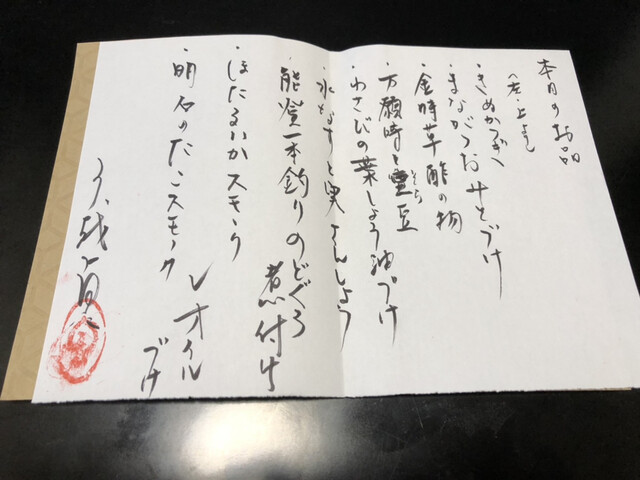 本日のお品
(左・上より)
・きぬかつぎ
・まながつおみそづけ
・金時草酢の物
・万願時と空豆
そら
・わさびの葉しょう油づけ
・水なすと実さんしょう
・能登一本釣りのどぐろ
煮付け
・ほたるいかスモーク
・明石のたこスモーク
レオイル
づけ